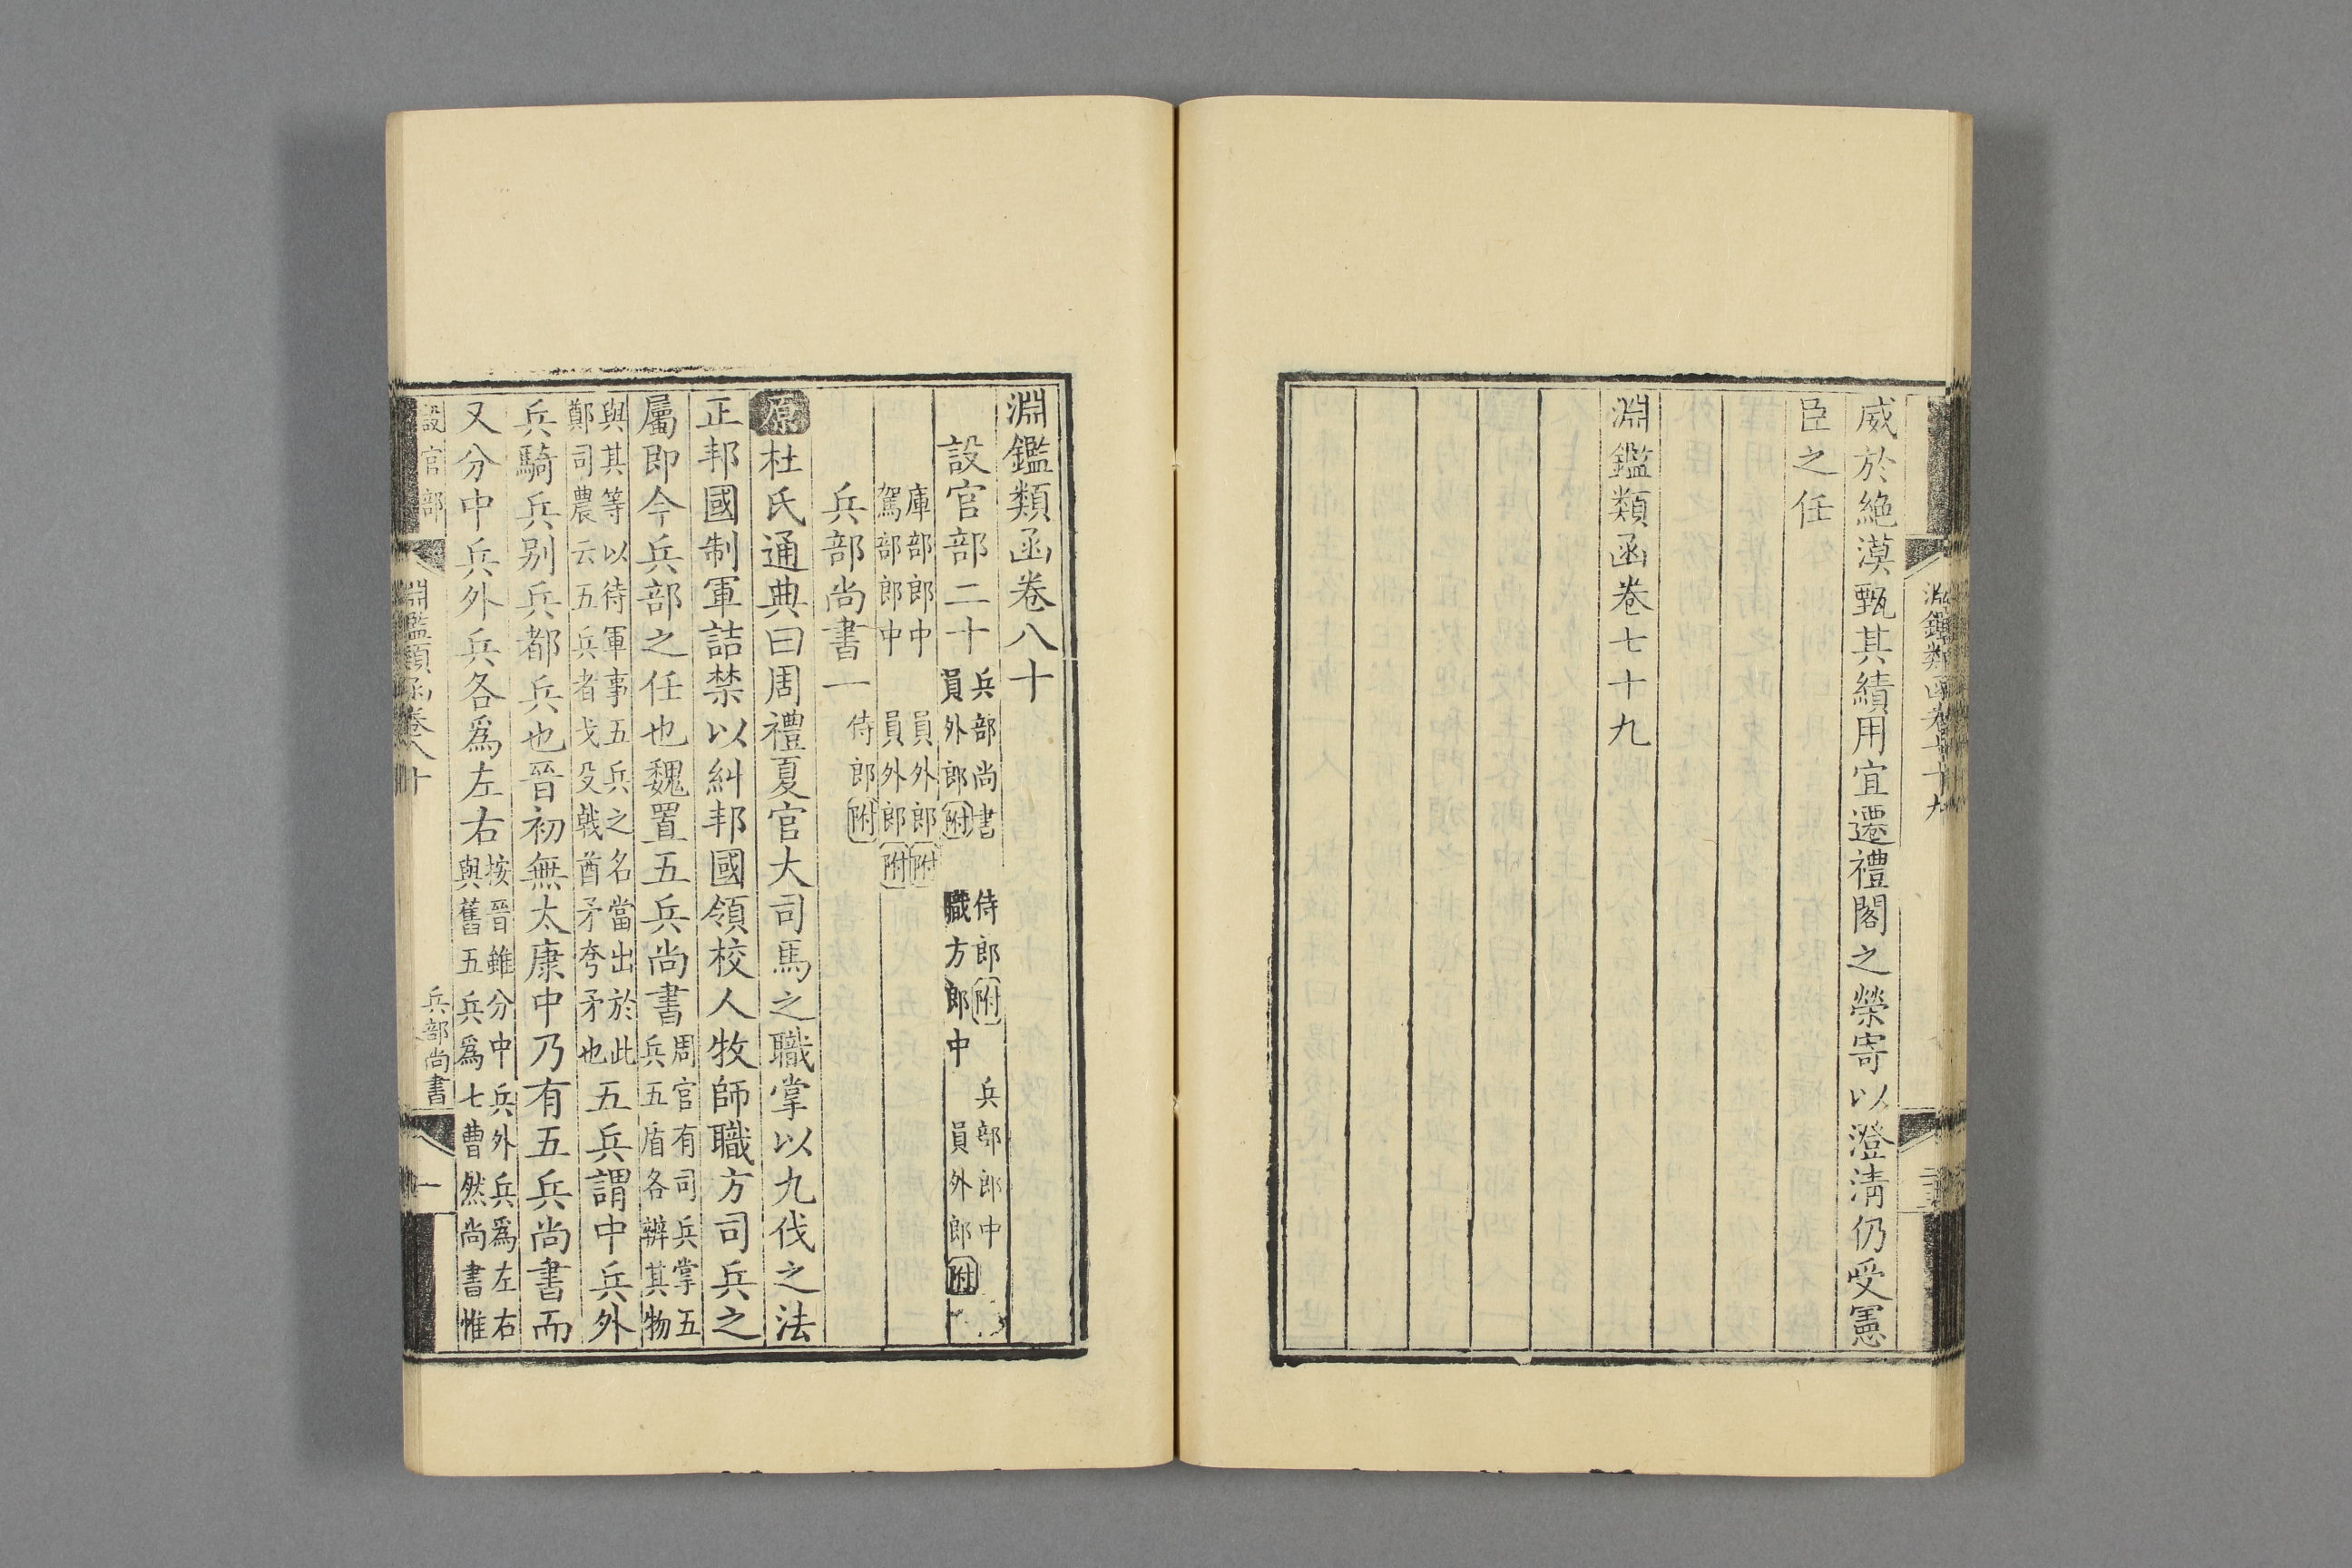 威於絶漠甄其績用宜遷禮閣之榮寄以澄清仍受憲
臣之任
淵鑑類函卷七十九
淵鑑類函卷七十九
淵鑑類函卷八十
設官部二十
兵部尚書
員外郎附
侍郎附
職方郎中
兵部郎中
員外郎附
庫部郎中
員外郎附
駕部郎中
員外郎附
兵部尚書一
侍郎附
原杜氏通典曰周禮夏官大司馬之職掌以九伐之法
正邦國制軍詰禁以糾邦國領校人牧師職方司兵之
屬即今兵部之任也魏置五兵尚書
周官有司兵掌五
兵五盾各辨其物
與其等以待軍事五兵之名當出於此
鄭司農云五兵者戈殳戟酋矛夸矛也
五兵謂中兵外
兵騎兵别兵都兵也晉初無太康中乃有五兵尚書而
又分中兵外兵各爲左右
按晉雖分中兵外兵爲左右
與舊五兵爲七曹然尚書惟
設官部
淵鑑類函卷八十
兵部尚書
一